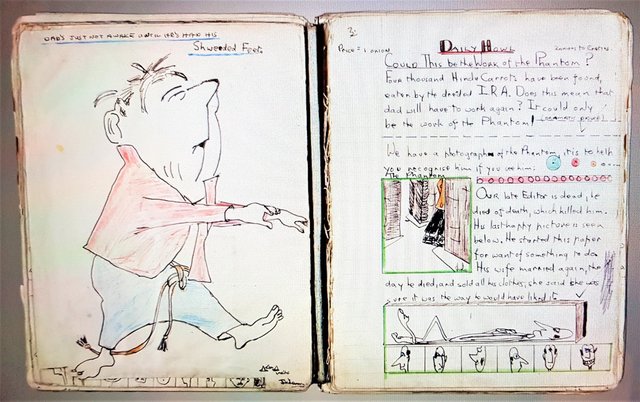 DAD'S JUST NOT AWAKE UNTIL HE'S HAD HIS
Shweeded Feets
3.
Price = 1 onion.
DAILY HOWL
Could This be the work of the Phantom?
Four thousand Hindu Carrots have been found,
eaten by the dreided I.R.A. Does this mean that
dad will have to work again? It could only
be the work of the Phantom!
We have a photograph of the Phantom, it is to help
you recognise him if you see him.
The Phantom
Our late Editor is dead, he
died of death, which killed him.
His last happy picture is seen
below. He started this paper
for want of something to do.
His wife married again, the
day he died, and sold all his clothes, she said she was
sure it was the way he would have liked it.